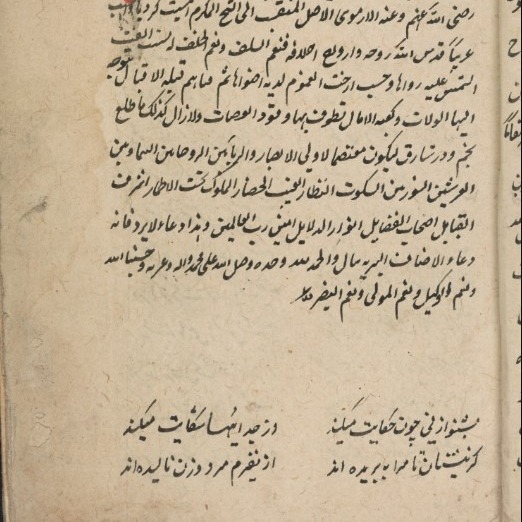 رضی الله عنهم وعنه الارموی الاصل المنتسب الی الشیخ المکرم امسیت کردیا واصبحت
عربیا قدس الله روحه وارواح اخلافه فنعم السلف ونعم الخلف له نسب القت
الشمس علیه رداها وحسب ارخت النجوم لدیه اضواءها فناءهم قبلة الاقبال یتوجه
الیها الولات وکعبة الامال یطوف بها وفود العصات ولا زال کذلک ما طلع
نجم وذر شارق لیکون معتصما لاولی الابصار والربانیین الروحانیین السماویین
العرشیین النوریین السکوت النظار الغیب الحضار الملوک تحت الاطمار اشراف
القبایل اصحاب الفضایل انوار الدلایل امین رب العالمین وهذا دعاء لا یرد فانه
دعاء لاصناف البریه شامل والحمد لله وحده وصلی الله علی محمد واله وعترته وحسبنا الله
ونعم الوکیل ونعم المولی ونعم النصیر
بشنو از نی چون حکایت میکند وز جداییها شکایت میکند
کز نیستان تا مرا ببریده اند از نفیرم مرد و زن نالیده اند